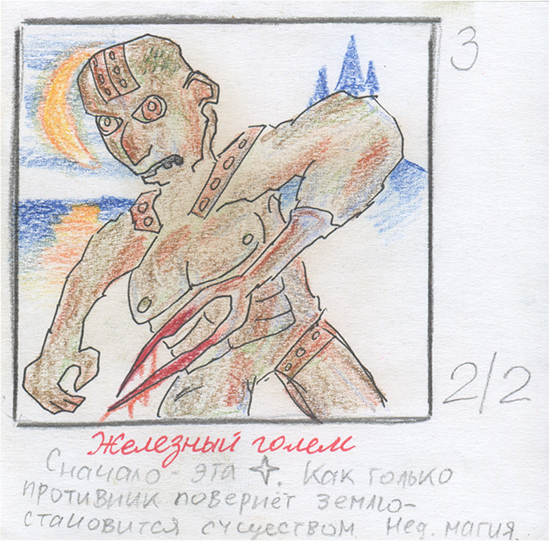 3
2/2
Железный голем
Сначало - эта ✧. Как только
противник повернёт землю-
становится существом. Нед. магия.